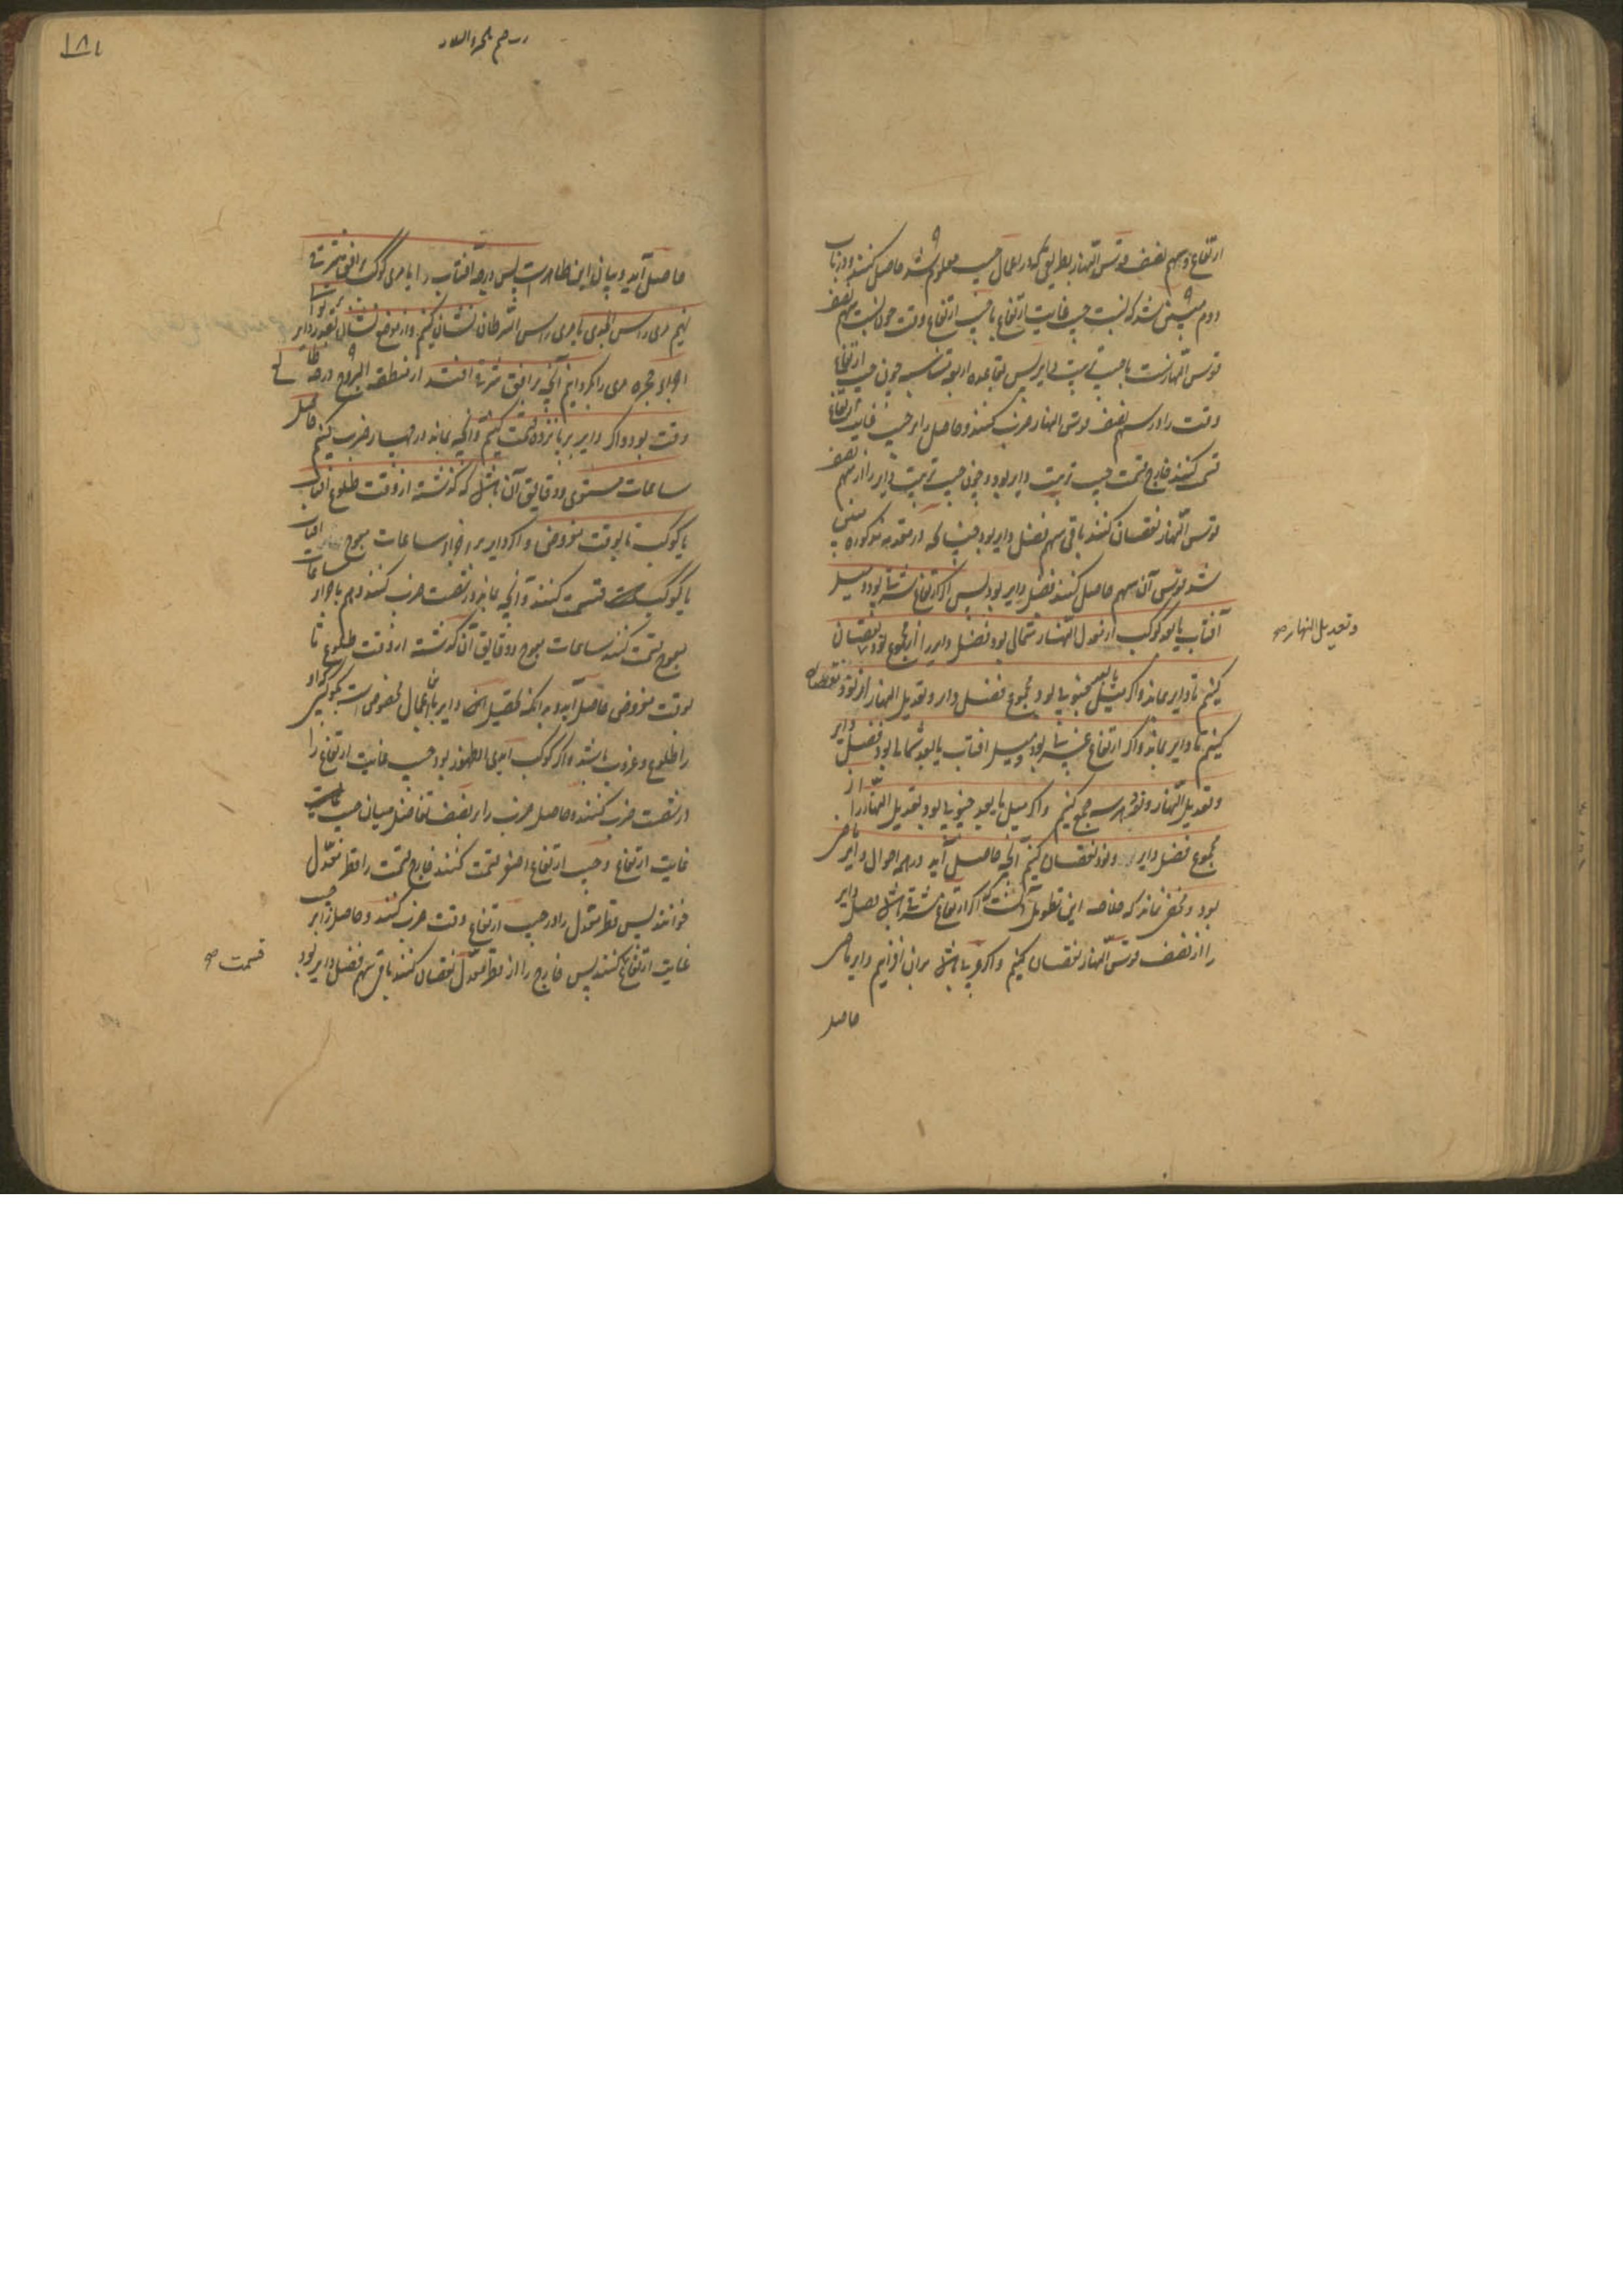 ارتفاع و سهم نصف قوس النهار بطریقی که در اعمال جیب معلوم شد حاصل کنند و در باب
دوم مبین شد که نسبت جیب غایت ارتفاع با جیب ارتفاع وقت چون نسبت سهم نصف
قوس النهارست با جیب ترتیب دایر پس بقاعده اربعه متناسبه چون جیب ارتفاع
وقت را در سهم نصف قوس النهار ضرب کنند و حاصل را بر جیب غایت ارتفاع
قسمت کنند خارج قسمت جیب ترتیب دایر بود و چون جیب ترتیب دایر را از سهم نصف
قوس النهار نقصان کنند باقی سهم فضل دایر بود چنانکه در مقدمه مذکوره مبین
شد قوس آن سهم حاصل کنند فضل دایر بود پس اگر ارتفاع شرقی بود و میل
آفتاب یا بعد کوکب از معدل النهار شمالی بود فضل دایر را از مجموع نود نقصان
وتعدیل النهار صح
کنیم تا دایر بماند و اگر میل یا بعد جنوبی بود مجموع فضل دایر و تعدیل النهار از نود نقصان
کنیم تا دایر بماند و اگر ارتفاع غربی بود و میل افتاب یا بعد شمالی بود فضل دایر
و تعدیل النهار و نود هر سه جمع کنیم و اگر میل یا بعد جنوبی بود تعدیل النهار را از
مجموع فضل دایر و نود نقصان کنیم آنچه حاصل آید در همه احوال دایر ماضی
بود و مخفی نماند که خلاصه این تطویل آنست که اگر ارتفاع شرقی باشد فضل دایر
را از نصف قوس النهار نقصان کنیم و اگر غربی باشد بران افزاییم دایر ماضی
حاصل
۱۸۱
حاصل آید و بیان این ظاهرست پس درجه آفتاب را یا مری کوکب بر افق شرقی
نهیم مری راس الجدی یا مری راس السرطان نشان کنیم و از موضع نشان بقدر دایر بر توالی
اجزاء حجره مری را بگردانیم آنچه بر افق شرقی افتد از منطقه البروج درجه طالع
وقت بود و اگر دایر بر پانزده قسمت کنیم و آنچه بماند در چهار ضرب کنیم حاصل
ساعات مستوی و دقایق آن باشد که گذشته از وقت طلوع افتاب
یا کوکب تا بوقت مفروض و اگر دایر بر اجزاء ساعات معوج افتاب
یا کوکب قسمت کنند و آنچه بماند در شصت ضرب کنند و هم باجزاء ساعات
معوج قسمت کنند ساعات معوج و دقایق آن گذشته از وقت طلوع تا
بوقت مفروض حاصل آید و بدانکه تحصیل دایر باین اعمال مخصوص است بکوکبی که او
را طلوع و غروب باشد و اگر کوکب ابدی الظهور بود جیب غایت ارتفاع را
در شصت ضرب کنند و حاصل ضرب را بر نصف تفاضل میان جیب
غایت ارتفاع و جیب ارتفاع اصغر قسمت کنند خارج قسمت را قطر معدل
خوانند پس قطر معدل را در جیب ارتفاع وقت ضرب کنند و حاصل را بر جیب
غایت ارتفاع کنند پس خارج را از قطر معدل نقصان کنند باقی سهم فضل دایر بود
قسمت صح